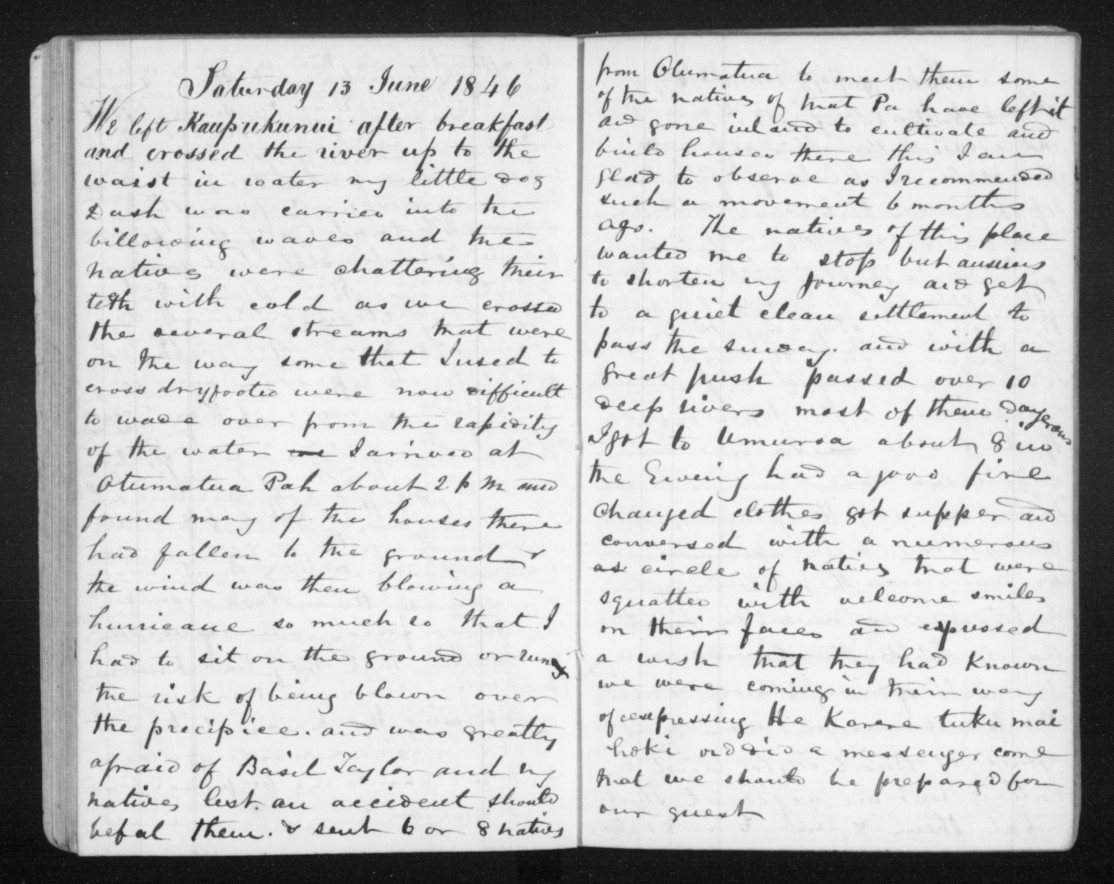 Saturday 13 June 1846
We left Kaupukunui after breakfast
and crossed the river up to the
waist in water my little dog
Dash was carried into the
billowing waves and the
natives were chattering their
teeth with cold as we crossed
the several streams that were
on the way some that I used to
cross dryfooted were now difficult
to wade over from the rapidity
of the water I arrived at
Otumatua Pah about 2 p m and
found many of the houses there
had fallen to the ground &
the wind was then blowing a
hurricane so much so that I
had to sit on the ground or run
the risk of being blown over
the precipice. and was greatly
afraid of Basil Taylor and my
natives lest an accident should
befal them. & sent 6 or 8 natives
from Otumatua to meet them some
of the natives of that Pa have left it
and gone inland to cultivate and
build houses there this I am
glad to observe as I recommended
such a movement 6 months
ago. The natives of this place
wanted me to stop but anxious
to shorten my journey and get
to a quiet clean settlement to
pass the sunday. and with a
great push passed over 10
deep rivers most of them dangerous
I got to Umuroa about 8 in
the Eveing had a good fire
changed clothes got supper and
conversed with a numerous
circle of natives that were
squatted with welcome smiles
on their faces and expressed
a wish that they had known
we were coming in their way
of expressing He Karere tuku mai
hoki did a messenger come
that we should be prepared for
our guest